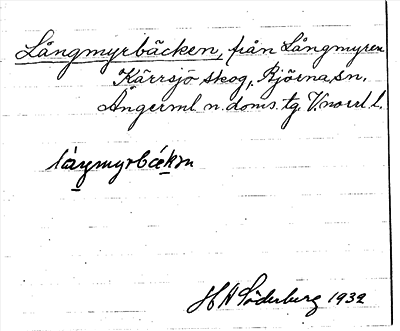 Långmyrbäcken, från Långmyren
Kärrsjö skog, Björna sn.
Ångerml. n. doms. tg. V.norrl. l.
H A Söderberg 1932